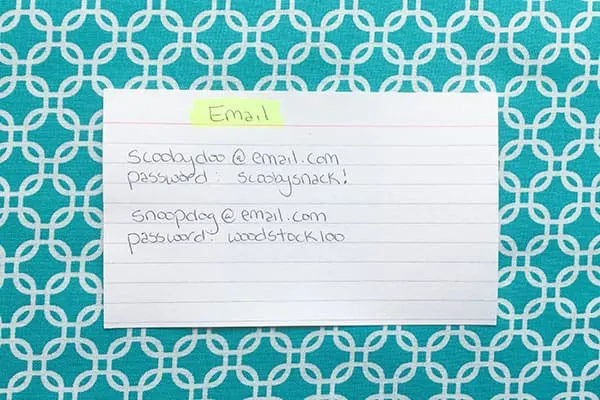 Email
scoobydoo@email.com
password: scoobysnack!
snoopdog@email.com
password: woodstock100